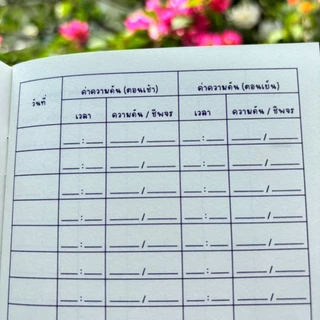 วันที่ ค่าความดัน (ตอนเช้า) ค่าความดัน (ตอนเย็น)
เวลา ความดัน / ชีพจร เวลา ความดัน / ชีพจร
__:__ ____/____ __:__ ____/____
__:__ ____/____ __:__ ____/____
__:__ ____/____ __:__ ____/____
__:__ ____/____ __:__ ____/____
__:__ ____/____ __:__ ____/____
__:__ ____/____ __:__ ____/____
__:__ ____/____ __:__ ____/____